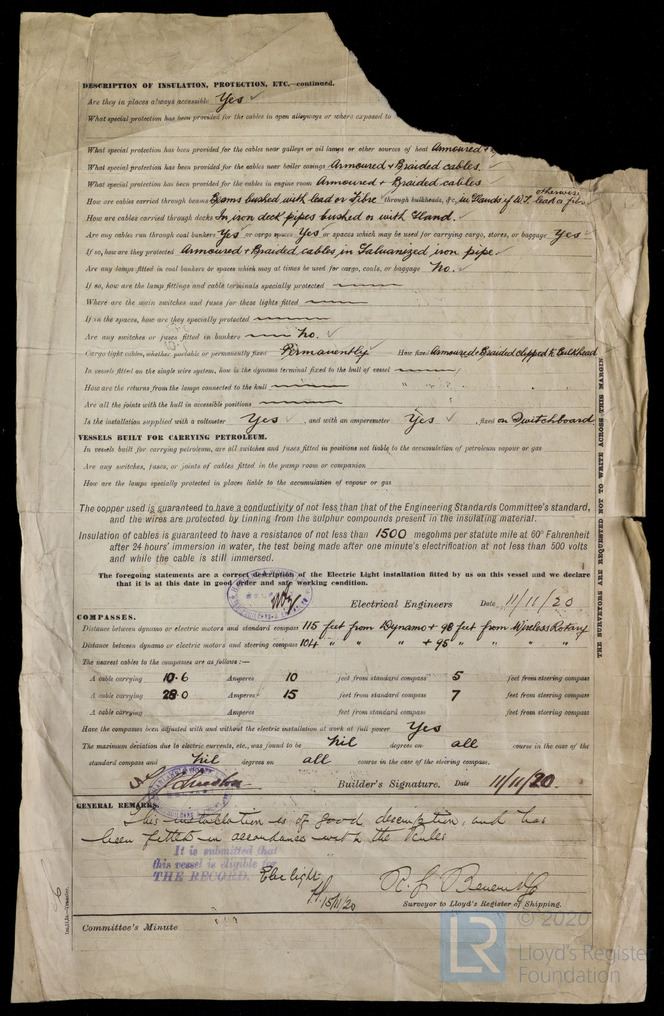 DESCRIPTION OF INSULATION, PROTECTION, ETC.—continued.
Are they in places always accessible Yes ✓
What special protection has been provided for the cables in open alleyways or where exposed to
What special protection has been provided for the cables near galleys or oil lamps or other sources of heat Armoured +
What special protection has been provided for the cables near boiler casings Armoured + Braided cables. ✓
What special protection has been provided for the cables in engine room Armoured + Braided cables
otherwise
How are cables carried through beams Beams bushed with lead or Fibre through bulkheads, &c. in Glands if W.T. lead or fibre
How are cables carried through decks In iron deck pipes bushed or with Gland. ✓
Are any cables run through coal bunkers Yes ✓ or cargo spaces Yes ✓ or spaces which may be used for carrying cargo, stores, or baggage Yes ✓
If so, how are they protected Armoured + Braided cables in Galvanized iron pipe. ✓
Are any lamps fitted in coal bunkers or spaces which may at times be used for cargo, coals, or baggage No. ✓
If so, how are the lamp fittings and cable terminals specially protected
Where are the main switches and fuses for these lights fitted
If in the spaces, how are they specially protected
Are any switches or fuses fitted in bunkers No. ✓
Cargo light cables, whether portable or permanently fixed Permanently How fixed Armoured + Braided clipped to Bulkhead
In vessels fitted on the single wire system, how is the dynamo terminal fixed to the hull of vessel
How are the returns from the lamps connected to the hull
Are all the joints with the hull in accessible positions
Is the installation supplied with a voltmeter Yes ✓ , and with an amperemeter Yes ✓ , fixed on Switchboard
VESSELS BUILT FOR CARRYING PETROLEUM.
In vessels built for carrying petroleum, are all switches and fuses fitted in positions not liable to the accumulation of petroleum vapour or gas
Are any switches, fuses, or joints of cables fitted in the pump room or companion
How are the lamps specially protected in places liable to the accumulation of vapour or gas
The copper used is guaranteed to have a conductivity of not less than that of the Engineering Standards Committee's standard,
and the wires are protected by tinning from the sulphur compounds present in the insulating material.
Insulation of cables is guaranteed to have a resistance of not less than 1500 megohms per statute mile at 60° Fahrenheit
after 24 hours' immersion in water, the test being made after one minute's electrification at not less than 500 volts
and while the cable is still immersed.
The foregoing statements are a correct description of the Electric Light installation fitted by us on this vessel and we declare
that it is at this date in good order and safe working condition.
Electrical Engineers Date 11/11/20
COMPASSES.
Distance between dynamo or electric motors and standard compass 115 feet from Dynamo + 98 feet from Wireless Rotary
Distance between dynamo or electric motors and steering compass 104 " " " + 95 " " " "
The nearest cables to the compasses are as follows:—
A cable carrying 10.6 Amperes 10 feet from standard compass 5 feet from steering compass
A cable carrying 28.0 Amperes 15 feet from standard compass 7 feet from steering compass
A cable carrying Amperes feet from standard compass feet from steering compass
Have the compasses been adjusted with and without the electric installation at work at full power Yes
The maximum deviation due to electric currents, etc., was found to be Nil degrees on all course in the case of the
standard compass and Nil degrees on all course in the case of the steering compass.
Builder's Signature. Date 11/11/20.
GENERAL REMARKS.
This installation is of good description, and has
been fitted in accordance with the Rules
It is submitted that
this vessel is eligible for
THE RECORD. Elec light
15/11/20
Surveyor to Lloyd's Register of Shipping.
Committee's Minute
THE SURVEYORS ARE REQUESTED NOT TO WRITE ACROSS THIS MARGIN
© 2020
LR
Lloyd's Register
Foundation